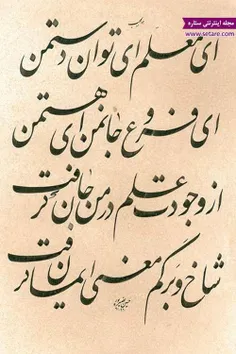 مجله اینترنتی ستاره
www.setare.com
ای معلم ای توان و دست من
ای فروغ جان من ای هست من
از وجودت علم در من جان گرفت
شاخ و برگم معنی ایمان گرفت